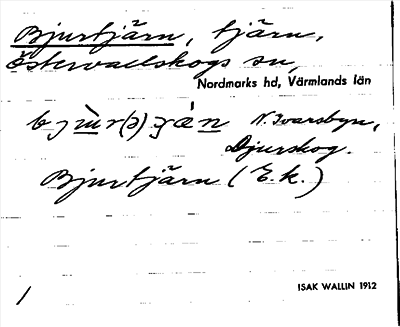 Bjurtjärn, tjärn,
Östervallskogs sn,
Nordmarks hd, Värmlands län
N. Ivarsbyn,
Djurskog.
Bjurtjärn (E.k.)
1
ISAK WALLIN 1912